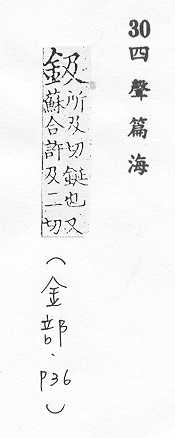 30四聲篇海
鈒所及切鋌也又
蘇合許及二切
(金部．P36)